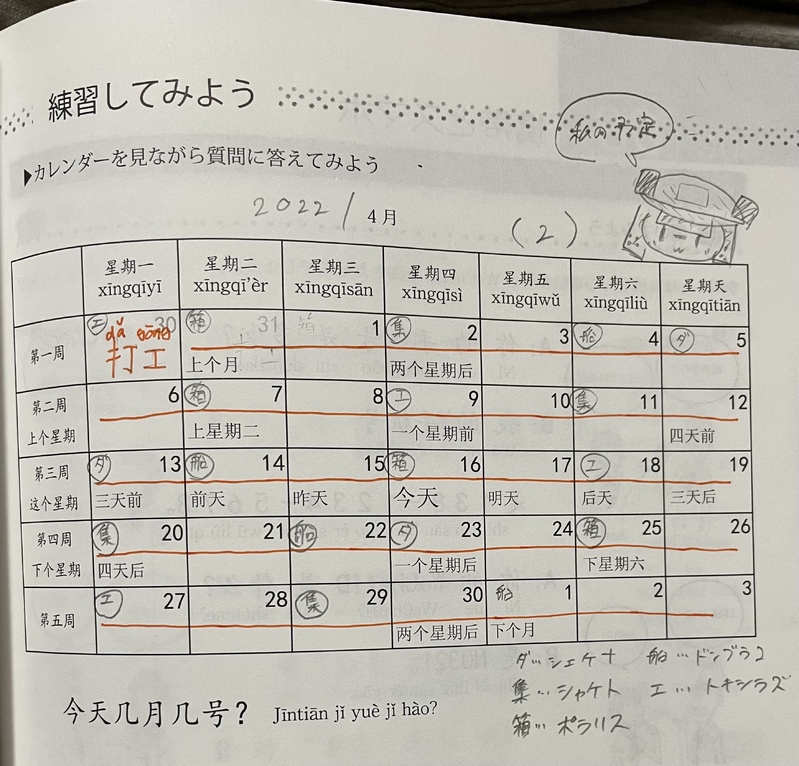 練習してみよう
私の予定
▶カレンダーを見ながら質問に答えてみよう
2022/ 4月
(2)
星期一 星期二 星期三 星期四 星期五 星期六 星期天
xīngqīyī xīngqī'èr xīngqīsān xīngqīsì xīngqīwǔ xīngqīliù xīngqītiān
第一周 工 30 箱 31 箱 1 集 2 3 船 4 ダ 5
dǎ gōng
打工 上个月 两个星期后
第二周 6 箱 7 8 工 9 10 集 11 12
上个星期 上星期二 一个星期前 四天前
第三周 ダ 13 船 14 15 箱 16 17 工 18 19
这个星期 三天前 前天 昨天 今天 明天 后天 三天后
第四周 集 20 21 船 22 ダ 23 24 箱 25 26
下个星期 四天后 一个星期后 下星期六
第五周 工 27 28 集 29 30 船 1 2 3
两个星期后 下个月
ダ…シェケナ 船…ドンブラコ
集…シャケト 工…トキシラズ
箱…ポラリス
今天几月几号? Jīntiān jǐ yuè jǐ hào?